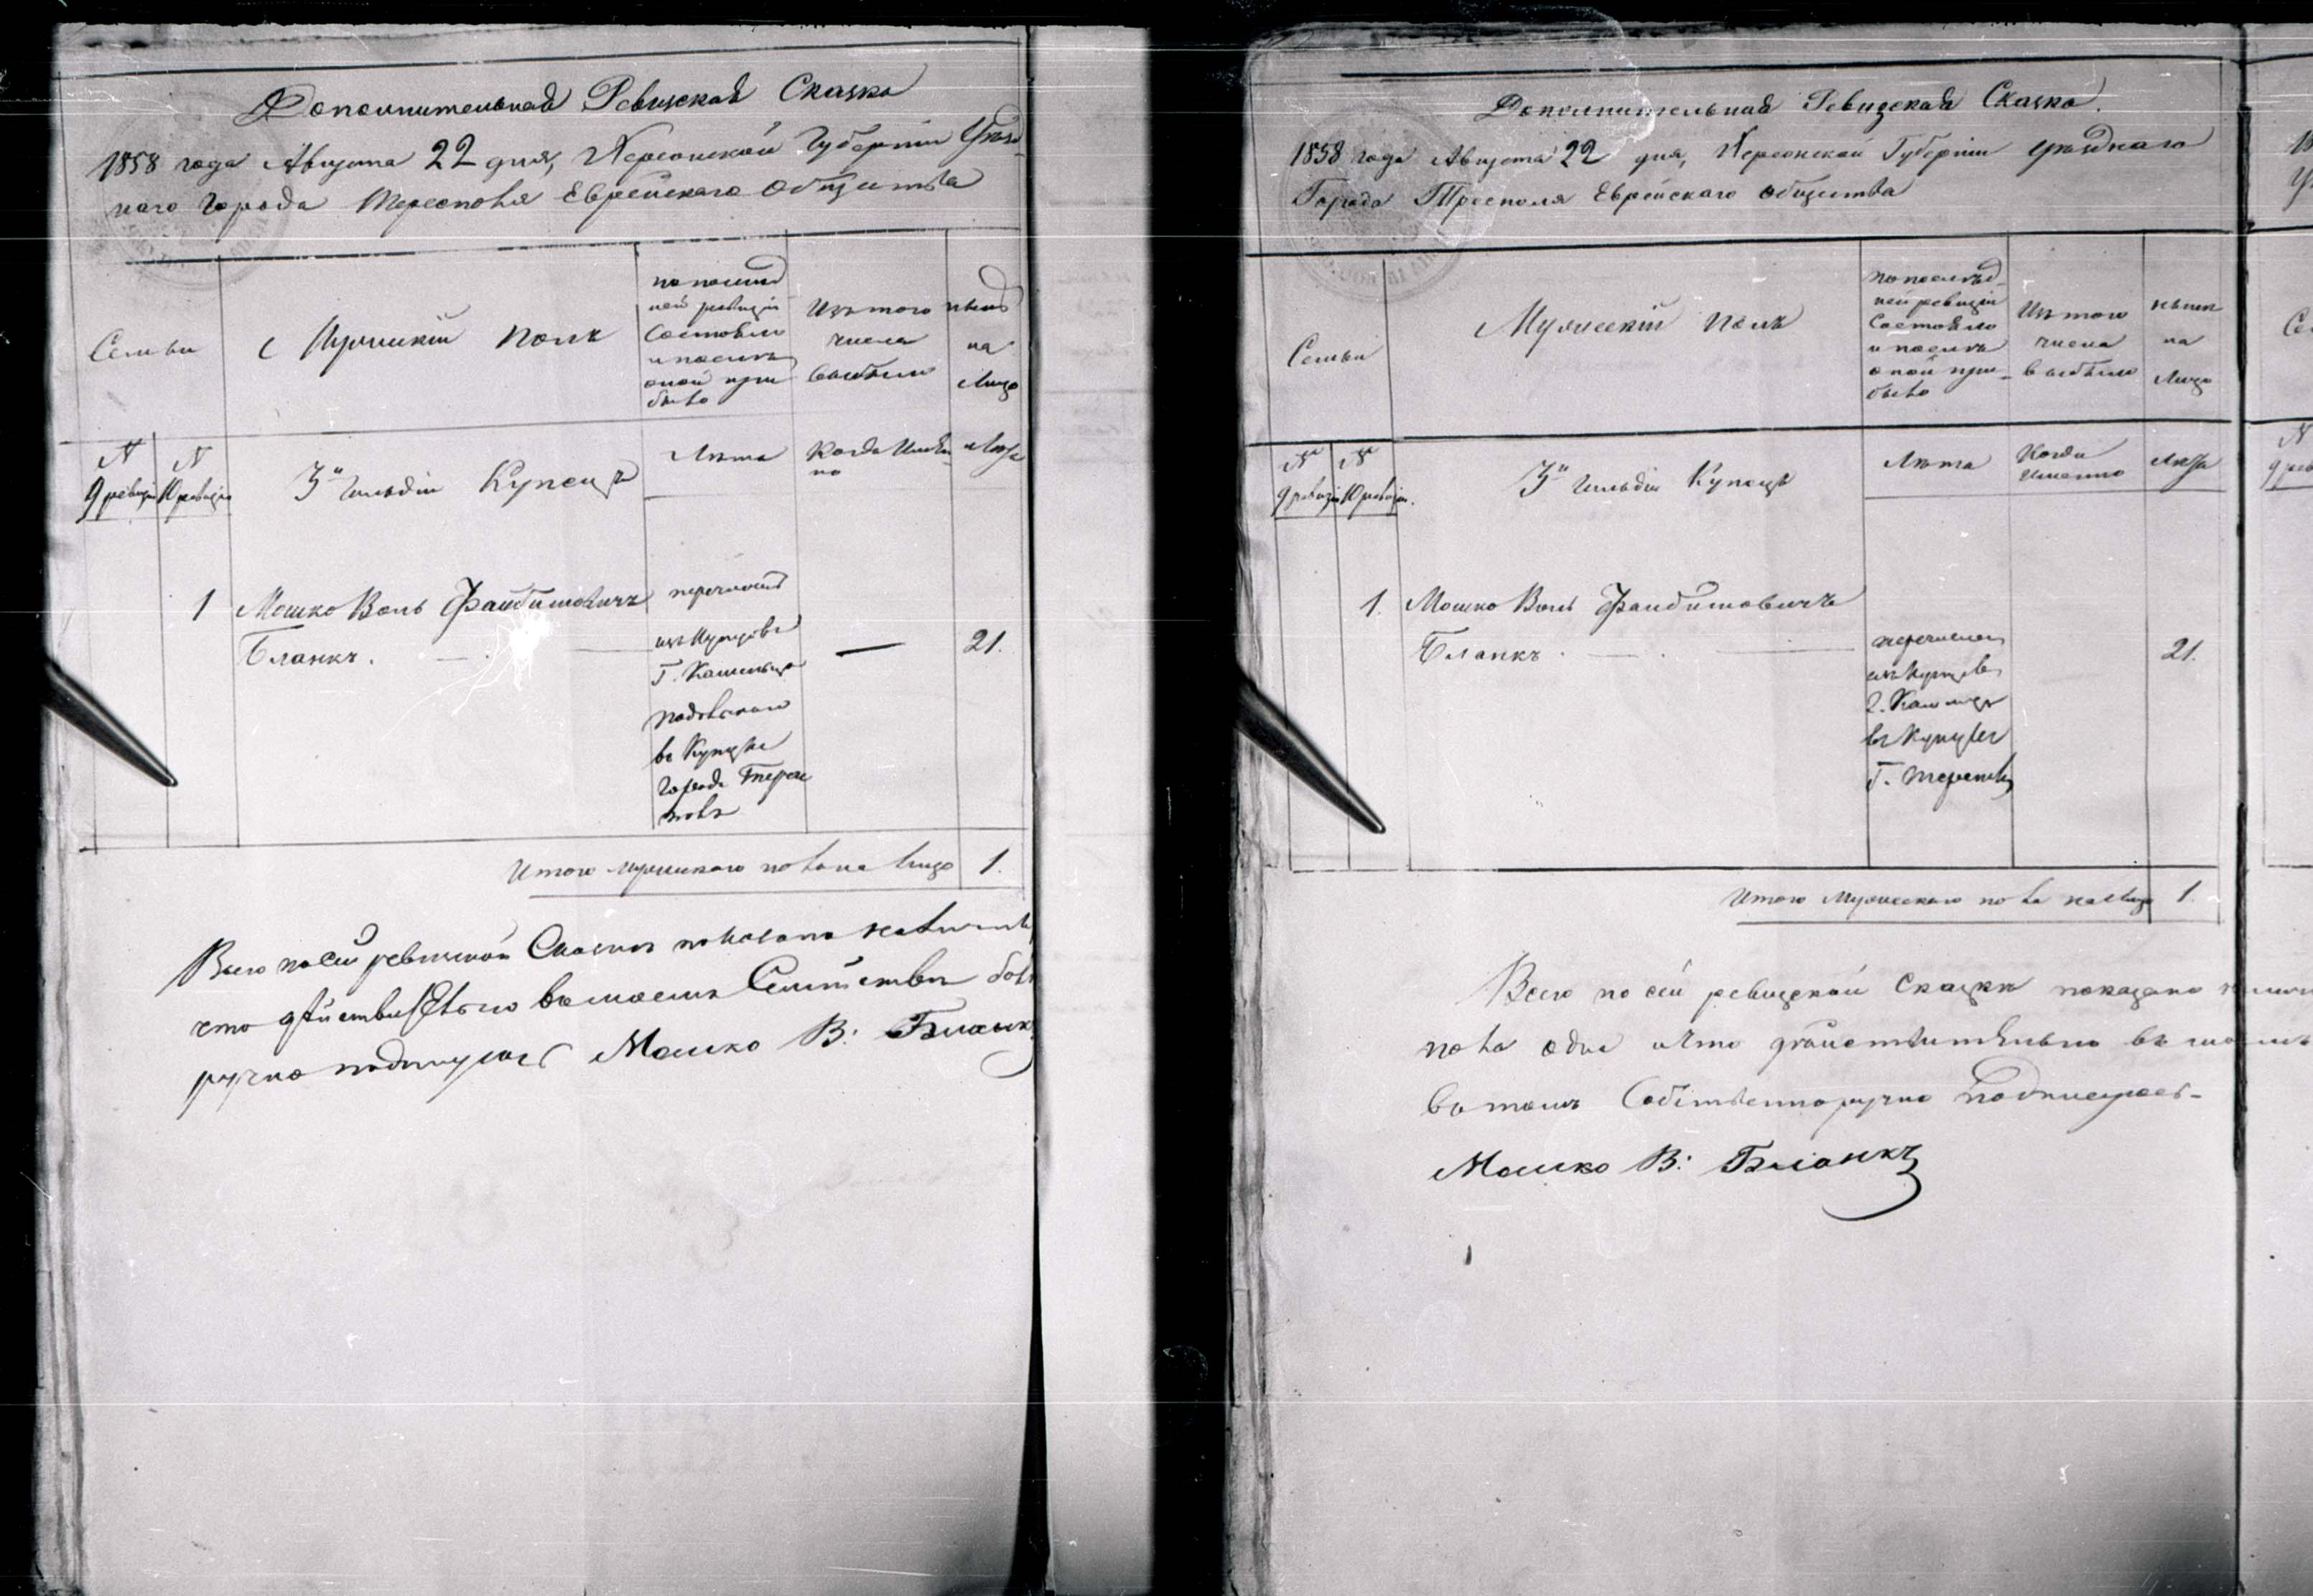 Дополнительная Ревизская Сказка
1858 года Августа 22 дня, Херсонской Губернiи Уезд-
наго Города Тирасполя Еврейскаго Общества
Семьи
Мужескiй полъ
по послед
ней ревизiи
Состояло
и после
оной при
было
Изъ того
числа
выбыло
ныне
на
Лицо
N
9 ревизiи
N
10 ревизiи
3й гильдiи Купецъ
Лета
Когда Имен
но
Лета
1 Мошко Воль Файбишовичъ
Бланкъ.
перечисленъ
изъ Купцовъ
Г. Каменца
Подольскаго
въ Купцы
города Тирас
поля
—
21.
Итого мужескаго пола на лицо 1.
Всего по сей ревизской Сказке показано налично
что действительно въ моемъ Семействе
ручно подписуюсь Мошко В: Бланк
Дополнительная Ревизская Сказка.
1858 года Августа 22 дня, Херсонской Губернiи уезднаго
Города Тирасполя Еврейскаго общества
Семьи
Мужескiй полъ
по послед-
ней ревизiи
Состояло
и после
оной при-
было
Изъ того
числа
выбыло
ныне
на
Лицо
N
9 ревизiи
N
10 ревизiи.
3й гильдiи Купецъ
Лета
Когда
Именно
Лета
1. Мошко Воль Файбишовичъ
Бланкъ.
перечисленъ
изъ Купцовъ
г. Каменца
въ Купцы
Г. Тирасполя
21.
Итого Мужескаго пола на лицо 1.
Всего по сей ревизской Сказке показано
пола одна и что действительно въ моемъ
въ томъ Собственноручно Подписуюсь-
Мошко В: Бланкъ